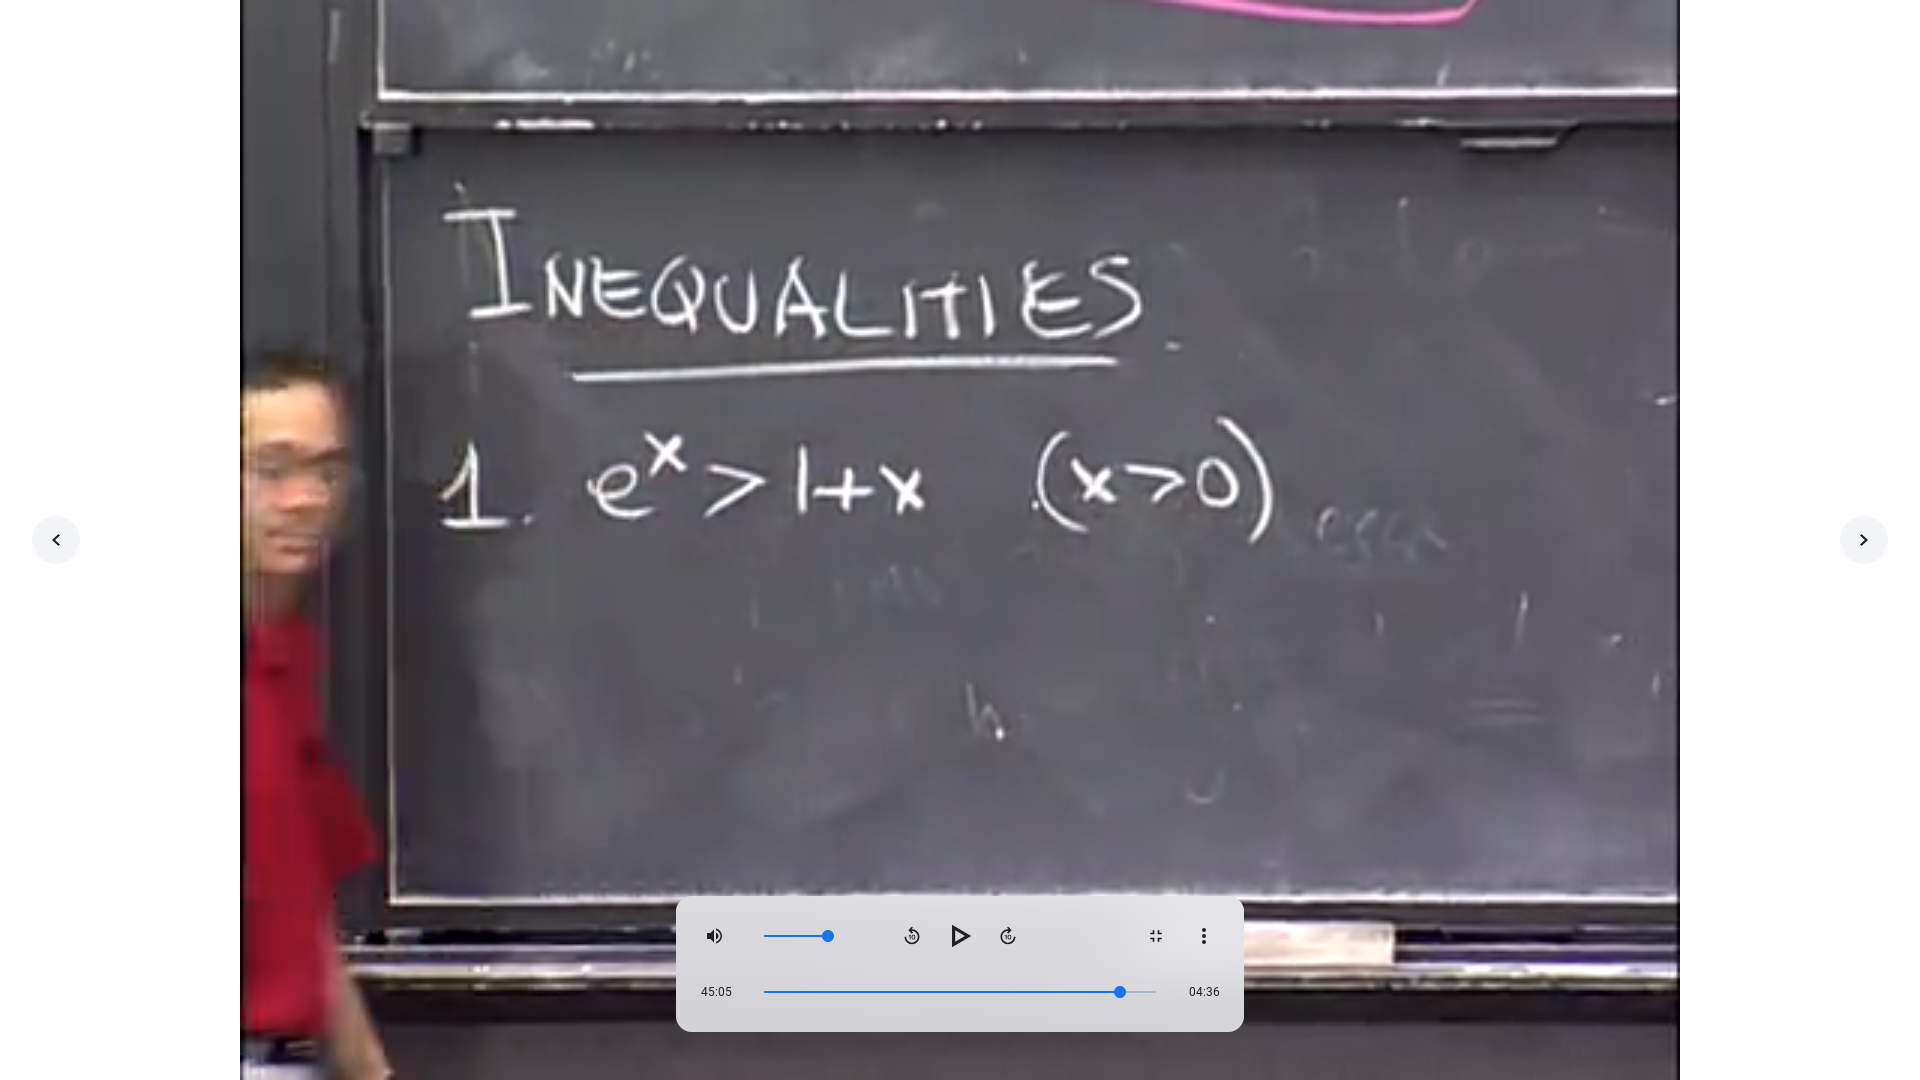 INEQUALITIES
1. e^x > 1+x (x>0)
10 10
45:05 04:36